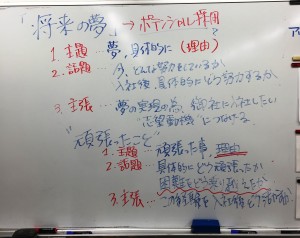 「将来の夢」→ポテンシャル採用
1. 主題…夢、具体的に(理由)
2. 話題…今、どんな努力をしているか
入社後、具体的にどう努力するか
3. 主張…夢の実現の為、御社に入社したい
"志望動機"につなげる
"頑張ったこと"
1. 主題…頑張った事、理由
2. 話題…具体的にどう頑張ったか
困難をどう乗り越えたか
3. 主張…この経験を入社後どう活かすか